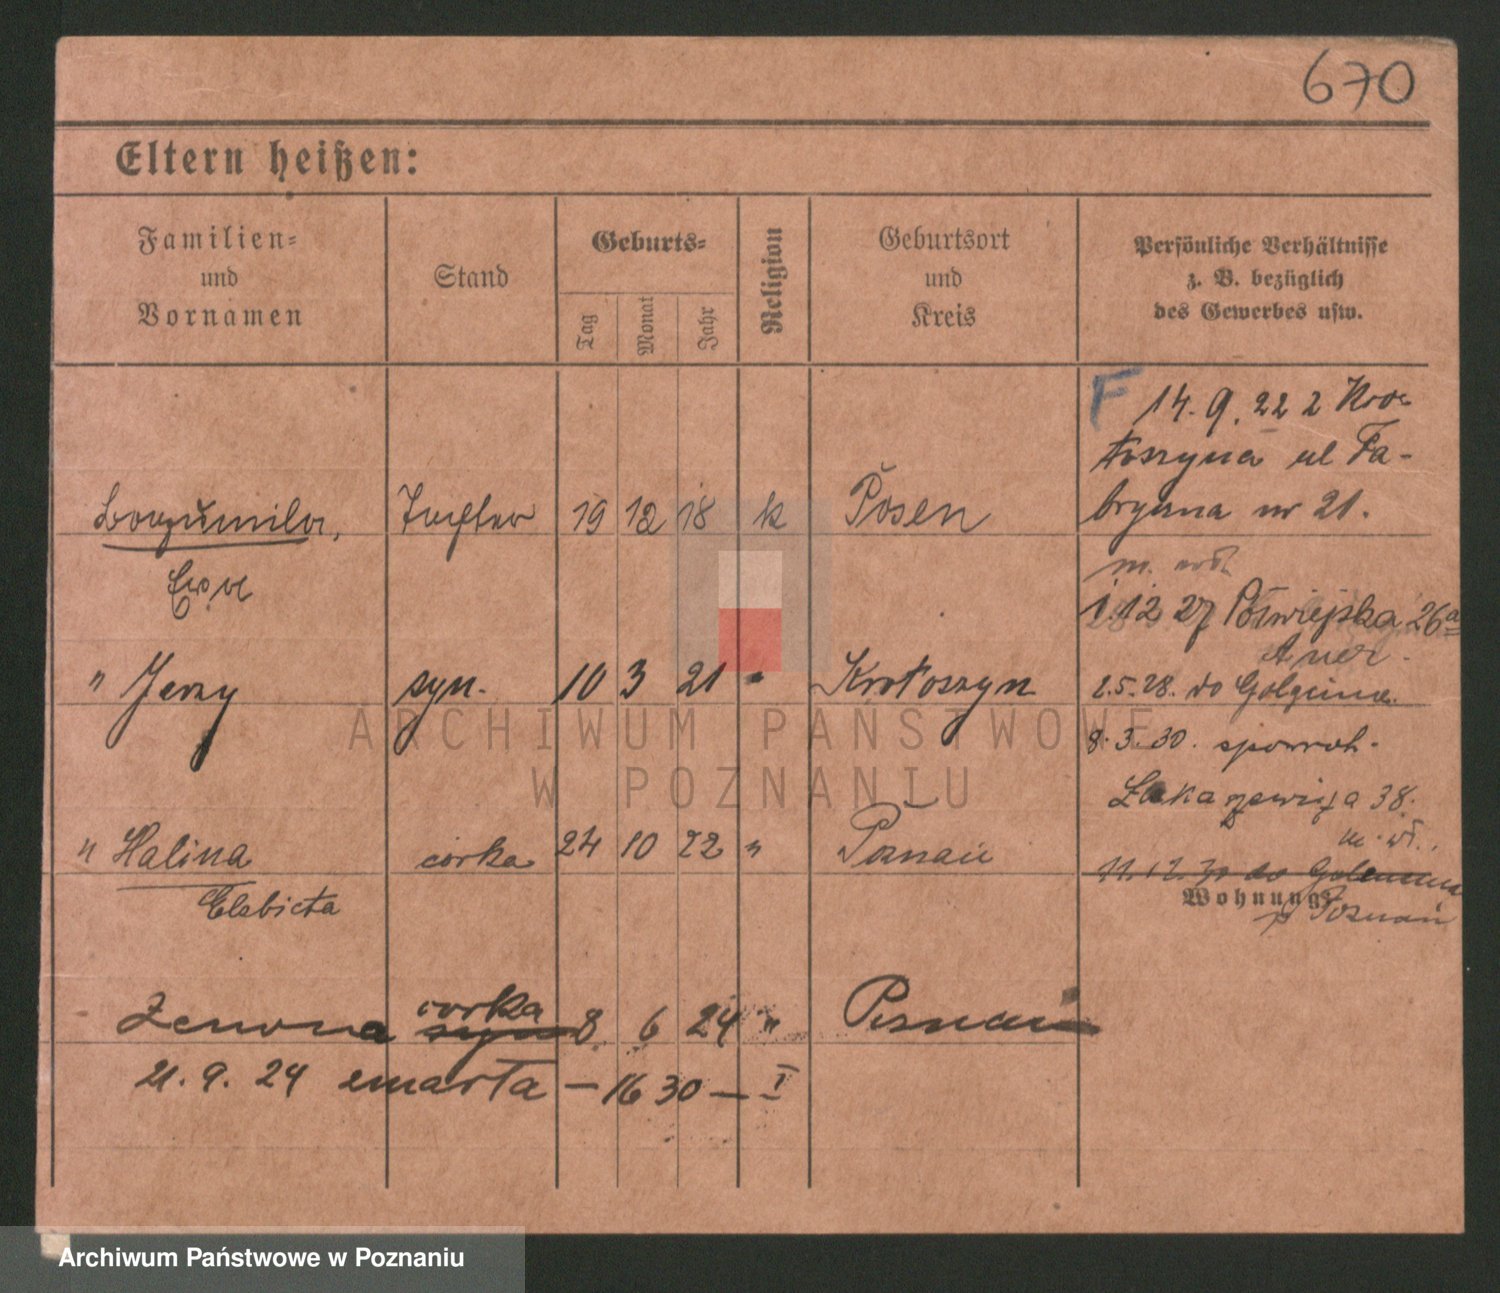 670
Eltern heißen:
Familien=
und
Vornamen
Stand
Geburts=
Tag
Monat
Jahr
Religion
Geburtsort
und
Kreis
Persönliche Verhältnisse
z. B. bezüglich
des Gewerbes usw.
F 14. 9. 22 z Kro-
toszyna ul Fa-
bryczna nr 21.
Bogumila, Tochter 19 12 18 k Posen
Ewa
1.12 27 Półwiejska 26a
" Jerzy syn. 10 3 21 " Krotoszyn
2.5.28. do Golęcina.
8.3.30. spowrot.
38.
" Halina córka 24 10 22 " Poznań
Elżbieta
Wohnung:
p Poznań
Zenona córka syn 8 6 24 " Poznań
21. 9. 24 zmarła — 16 30 — I
ARCHIWUM PAŃSTWOWE
W POZNANIU
Archiwum Państwowe w Poznaniu